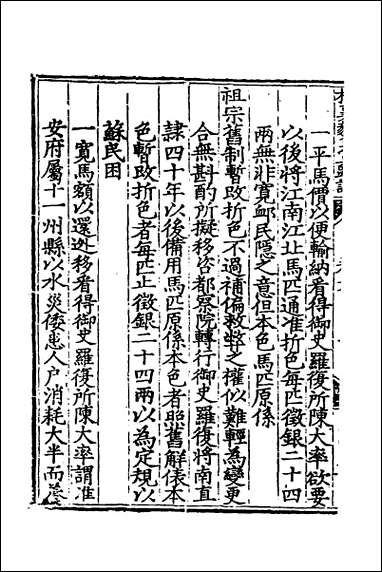 一平馬價以便輸納看得御史羅復所陳大率欲要
以後將江南江北馬匹通准折色每匹徵銀二十四
兩無非寬邺民隱之意但本色馬匹原係
祖宗舊制暫改折色不過補偏救弊之權似難輕為變更
合無斟酌所擬移咨都察院轉行御史羅復將南直
隸四十年以後備用馬匹原係本色者照舊解俵本
色暫改折色者每匹止徵銀二十四兩以為定規以
蘇民困
一寬馬額以還逃移看得御史羅復所陳大率謂淮
安府屬十一州縣以水災倭患人户消耗大半而